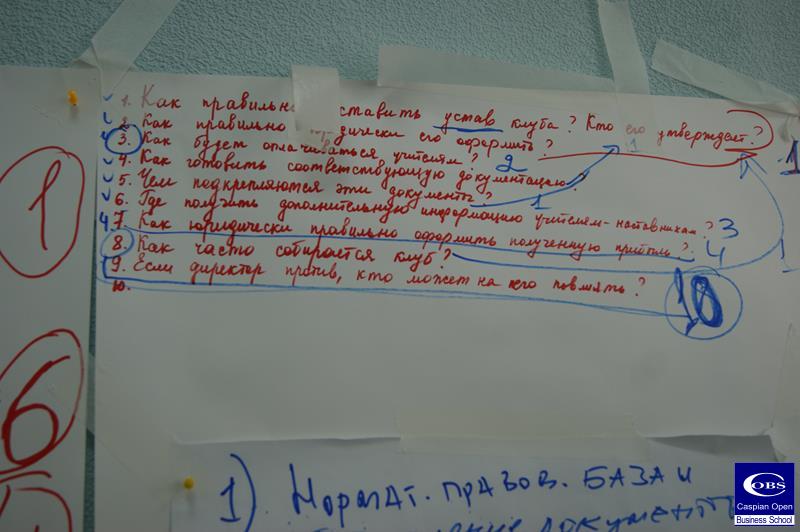 1. Как правильно ставить устав клуба? Кто его утверждает?
2. Как правильно дически его оформить?
3. Как будет оплачиваться учителям?
4. Как готовить соответствующую документацию?
5. Чем подкрепляются эти документы?
6. Где получить дополнительную информацию учителям-наставникам?
7. Как юридически правильно оформить полученную прибыль?
8. Как часто собирается клуб?
9. Если директор против, кто может на него повлиять?
10.
1
2
1
3
4
1
1
10
1
6
1). Нормат. правов. база и
документы
OBS
Caspian Open
Business School